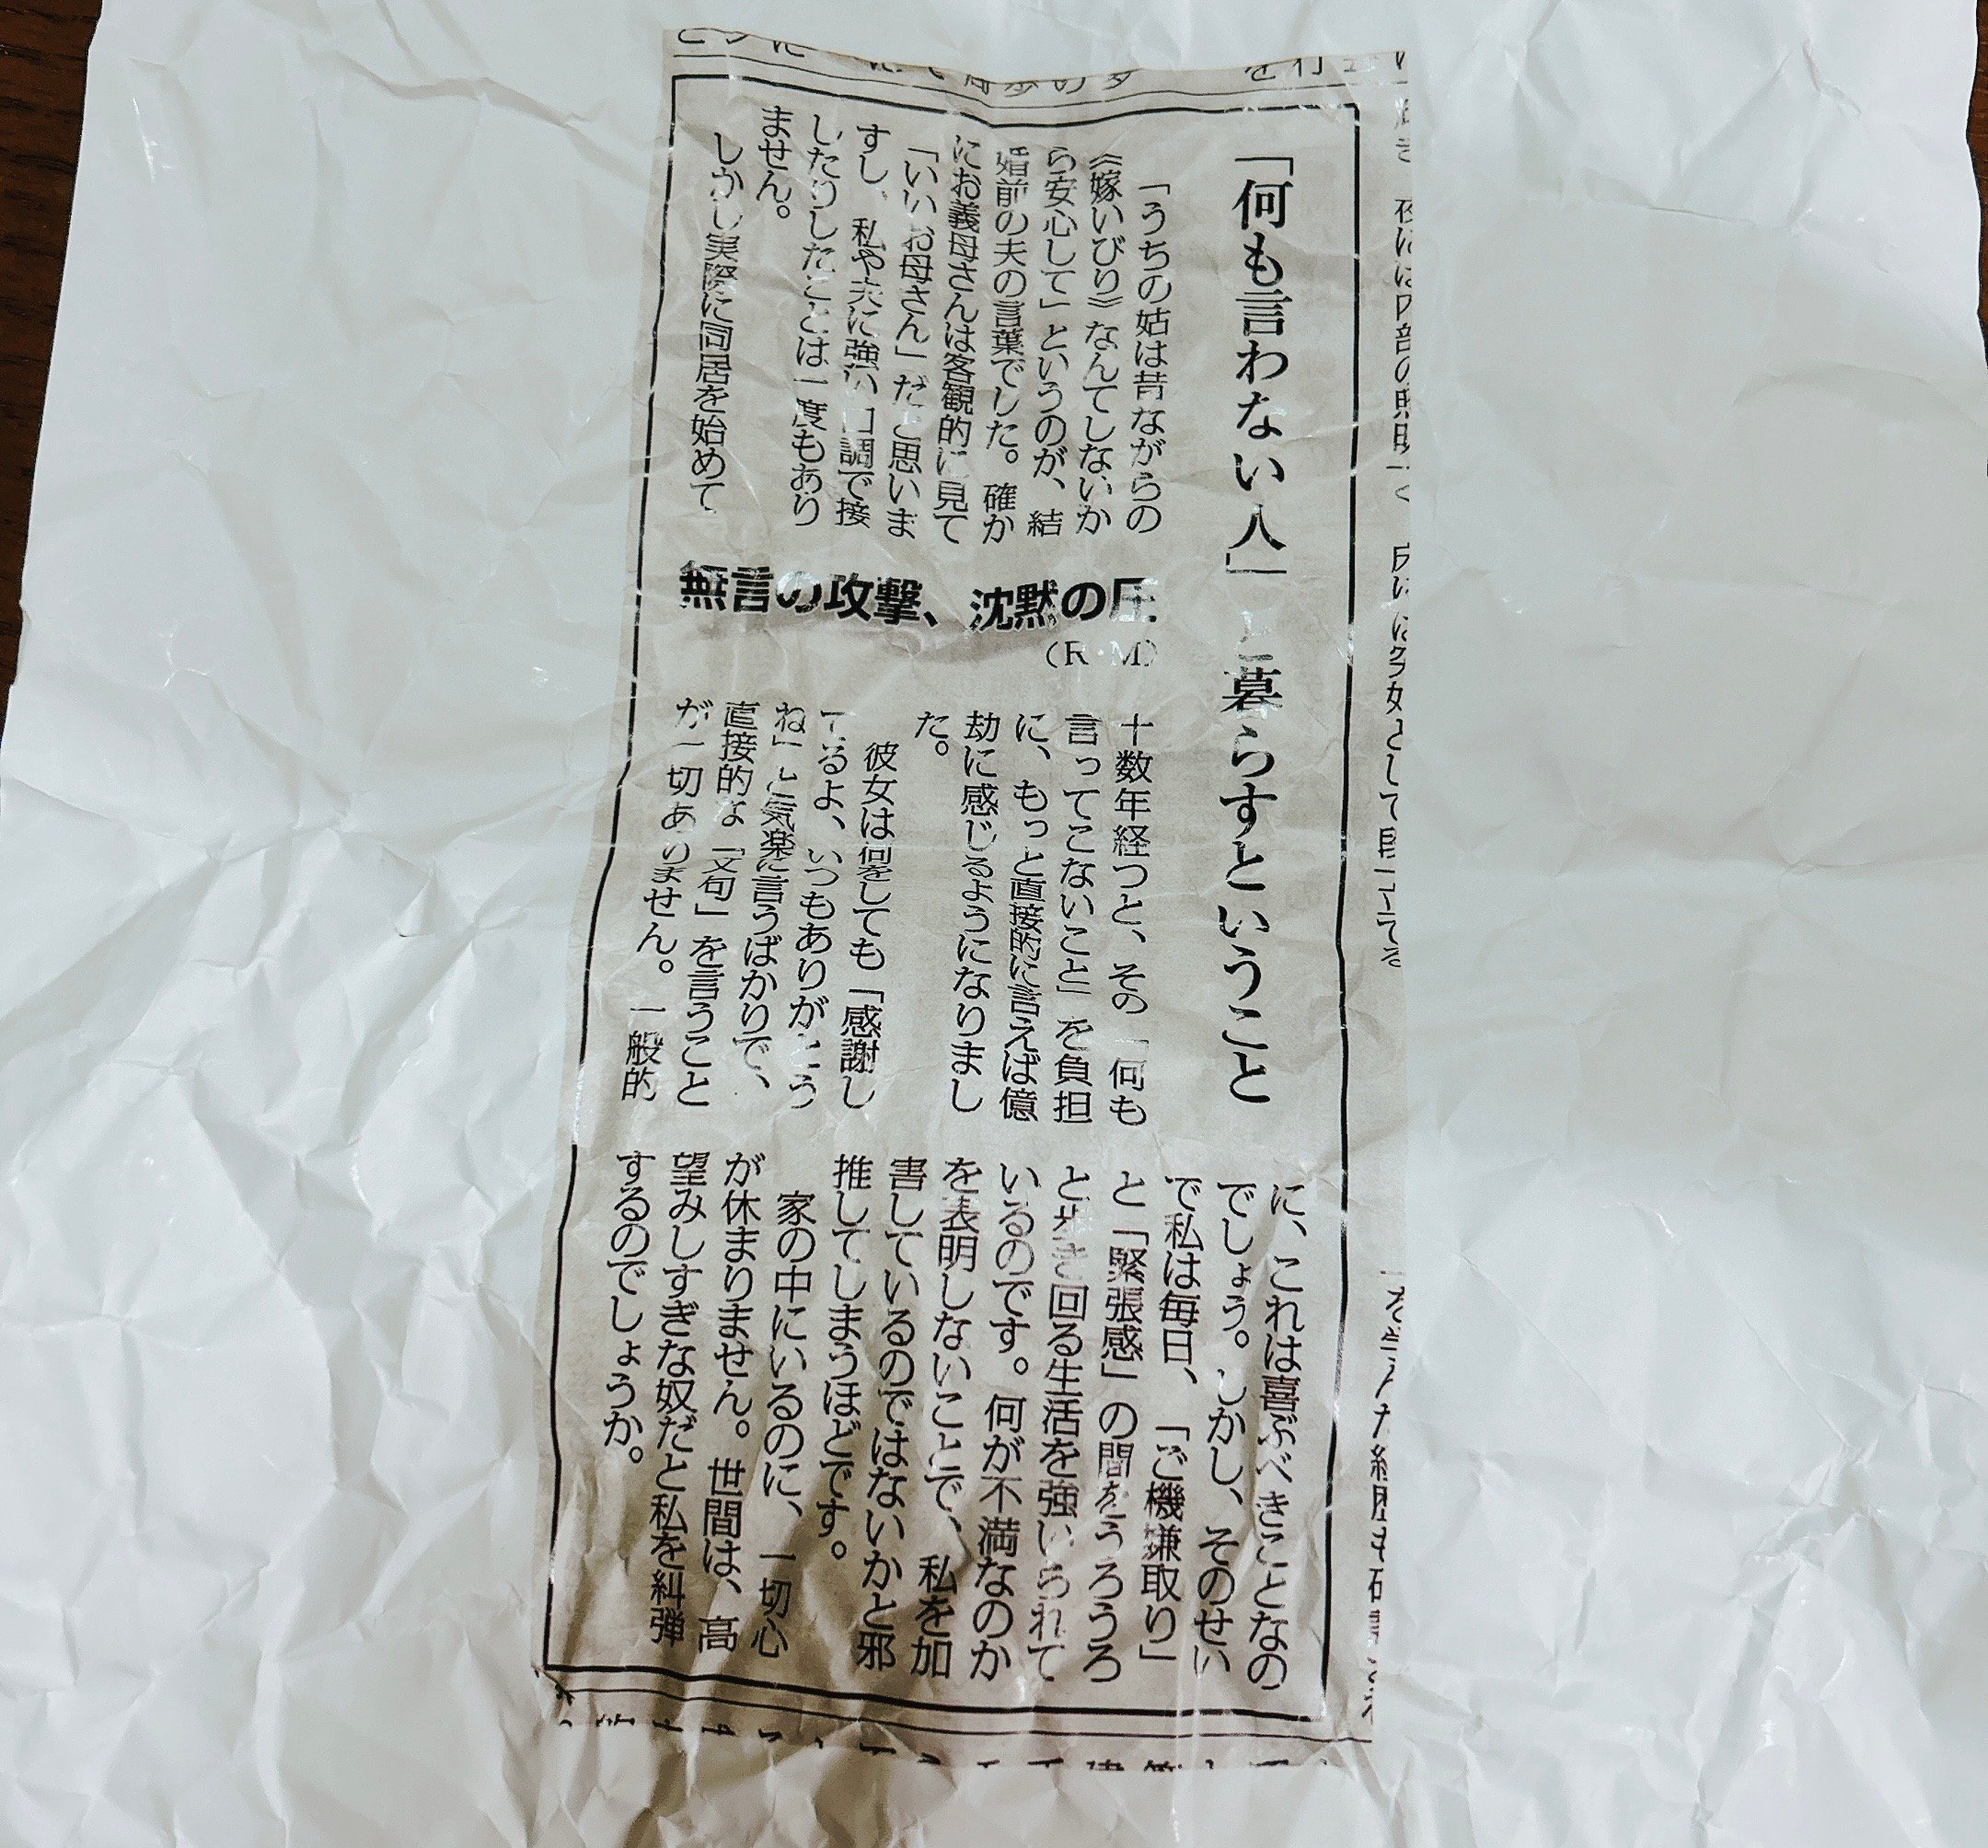 「何も言わない人」と暮らすということ
「うちの姑は昔ながらの
《嫁いびり》なんてしないか
ら安心して」というのが、結
婚前の夫の言葉でした。確か
にお義母さんは客観的に見て
「いいお母さん」だと思いま
すし、私や夫に強い口調で接
したりしたことは一度もあり
ません。
しかし実際に同居を始めて
無言の攻撃、沈黙の圧
（R・M）
十数年経つと、その「何も
言ってこないこと」を負担
に、もっと直接的に言えば億
劫に感じるようになりまし
た。
彼女は何をしても「感謝し
てるよ、いつもありがとう
ね」と気楽に言うばかりで、
直接的な「文句」を言うこと
が一切ありません。一般的
に、これは喜ぶべきことなの
でしょう。しかし、そのせい
で私は毎日、「ご機嫌取り」
と「緊張感」の間をうろうろ
と歩き回る生活を強いられて
いるのです。何が不満なのか
を表明しないことで、私を加
害しているのではないかと邪
推してしまうほどです。
家の中にいるのに、一切心
が休まりません。世間は、高
望みしすぎな奴だと私を糾弾
するのでしょうか。